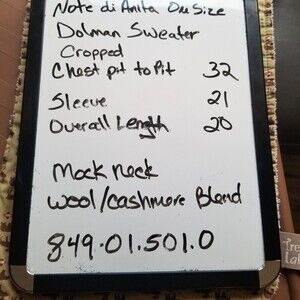 Note di Anita One Size
Dolman Sweater
Cropped
Chest pit to Pit 32
Sleeve 21
Overall Length 20
Mock neck
Wool/Cashmere Blend
849.01.501.0